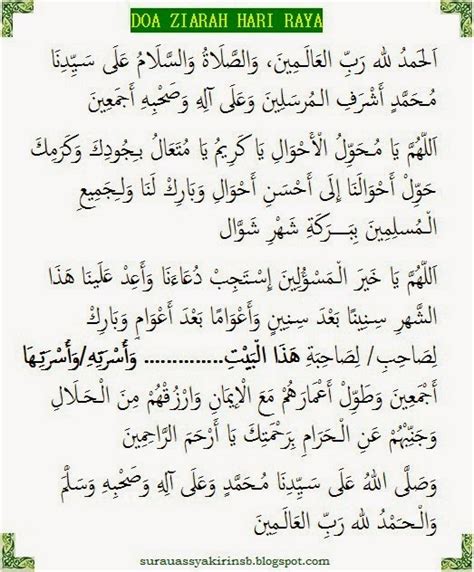 DOA ZIARAH HARI RAYA
اَلْحَمْدُ لله رَبِّ العَالَـمِينَ، وَالصَّلَاةُ وَالسَّلَامُ عَلَى سَيِّدِنَا
مُـحَمَّدٍ أَشْرَفِ الـمُرسَلِينَ وَعَلَى آلِهِ وَصَحْبِهِ أَجْمَعِينَ
اَللّٰهُمَّ يَا مُـحَوِّلَ الْأَحْوَالِ يَا كَرِيمُ يَا مُتَعَالُ بِـجُودِكَ وَكَرَمِكَ
حَوِّلْ أَحْوَالَنَا إِلَى أَحْسَنِ أَحْوَالٍ وَبَارِكْ لَنَا وَلِـجَمِيعِ
الْـمُسلِمِينَ بِبَـرَكَةِ شَهْرِ شَوَّال
اَللّٰهُمَّ يَا خَيرَ الْـمَسؤُلِينَ إِسْتَجِبْ دُعَاءَنَا وَأَعِدْ عَلَينَا هَذَا
الشَّهرِ سِنِينًا بَعْدَ سِنِينٍ وَأَعْوَامًا بَعْدَ أَعْوَامٍ وَبَارِكْ
لِصَاحِبِ/ لِصَاحِبَةِ هَذَا الْبَيْتِ.............. وَأُسْرَتِهِ/وَأُسْرَتِـهَا
أَجْمَعِينَ وَطَوِّلْ أَعْمَارَهُمْ مَعَ الْإِيمَانِ وَارْزُقْهُمْ مِنَ الْـحَلَالِ
وَجَنِّبْهُمْ عَنِ الْـحَرَامِ بِرَحْمَتِكَ يَا أَرْحَمَ الرَّاحِمِينَ
وَصَلَّى اللهُ عَلَى سَيِّدِنَا مُـحَمَّدٍ وَعَلَى آلِهِ وَصَحْبِهِ وَسَلَّمَ
وَالْـحَمْدُ لله رَبِّ الْعَالَـمِينَ
surauassyakirinsb.blogspot.com